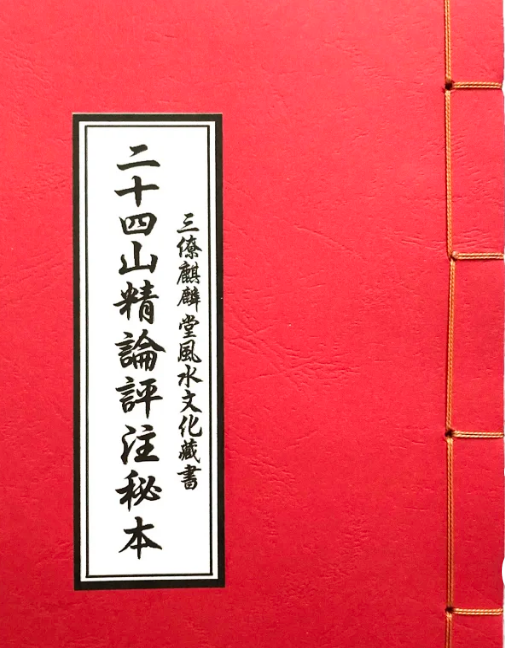 三僚麒麟堂風水文化藏書
二十四山精論評注秘本